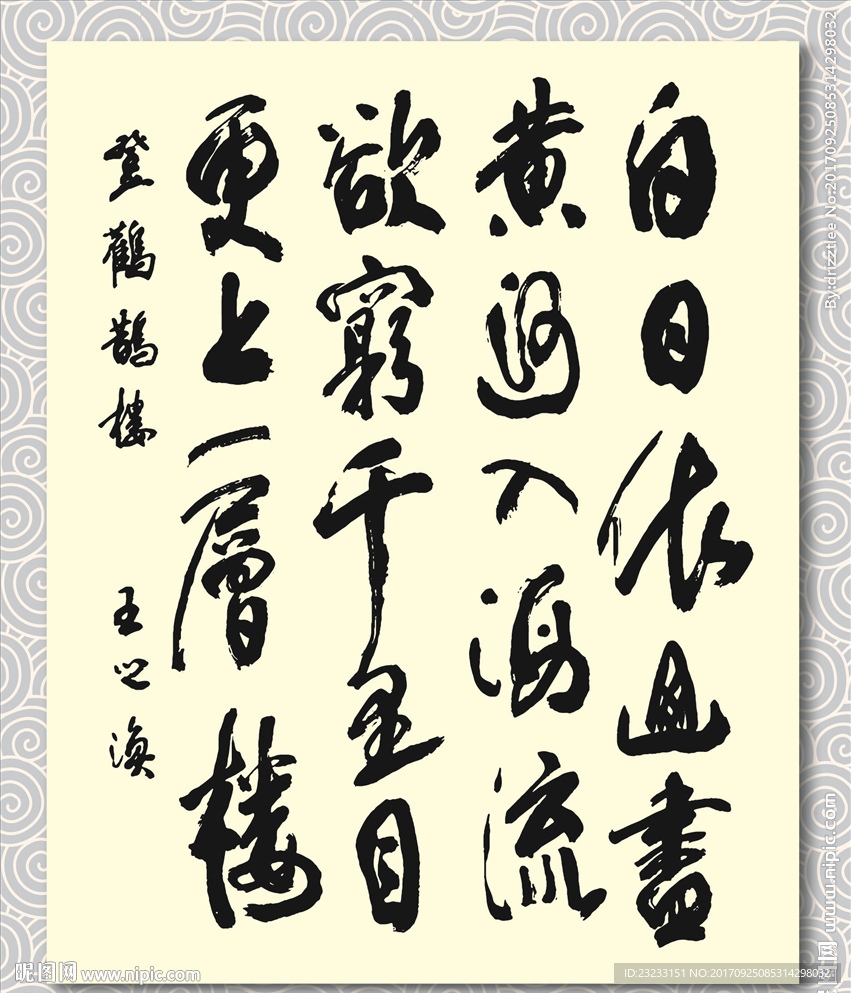 白日依山盡
黄河入海流
欲窮千里目
更上一層樓
登鸛鵲樓
王之渙
By:drizztlee No:20170925085314298032
昵图网 www.nipic.com
昵图网 www.nipic.com
ID:23233151 NO:20170925085314298032